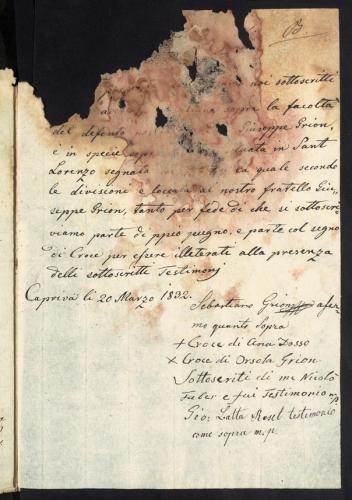 B.
noi sottoscritti
sopra la facoltà
del defonto Giuseppe Grion,
e in specie sopra in Sant
Lorenzo segnata quale secondo
le divisioni è toccata al nostro fratello Giu-
seppe Grion, tanto per fede di che si sottoscri-
viamo parte di ppio pugno, e parte col segno
di Croce per essere illeterati alla presenza
delli sottoscritti Testimonj
Capriva li 20 Marzo 1832.
Sebastiano Grion afer-
mo quanto Sopra
+ Croce di Ana Dosso
× Croce di Orsola Grion
Sottoscriti di me Nicolò
Faber e fui Testimonio mp
Gio: Batta testimonio
come sopra m.p.